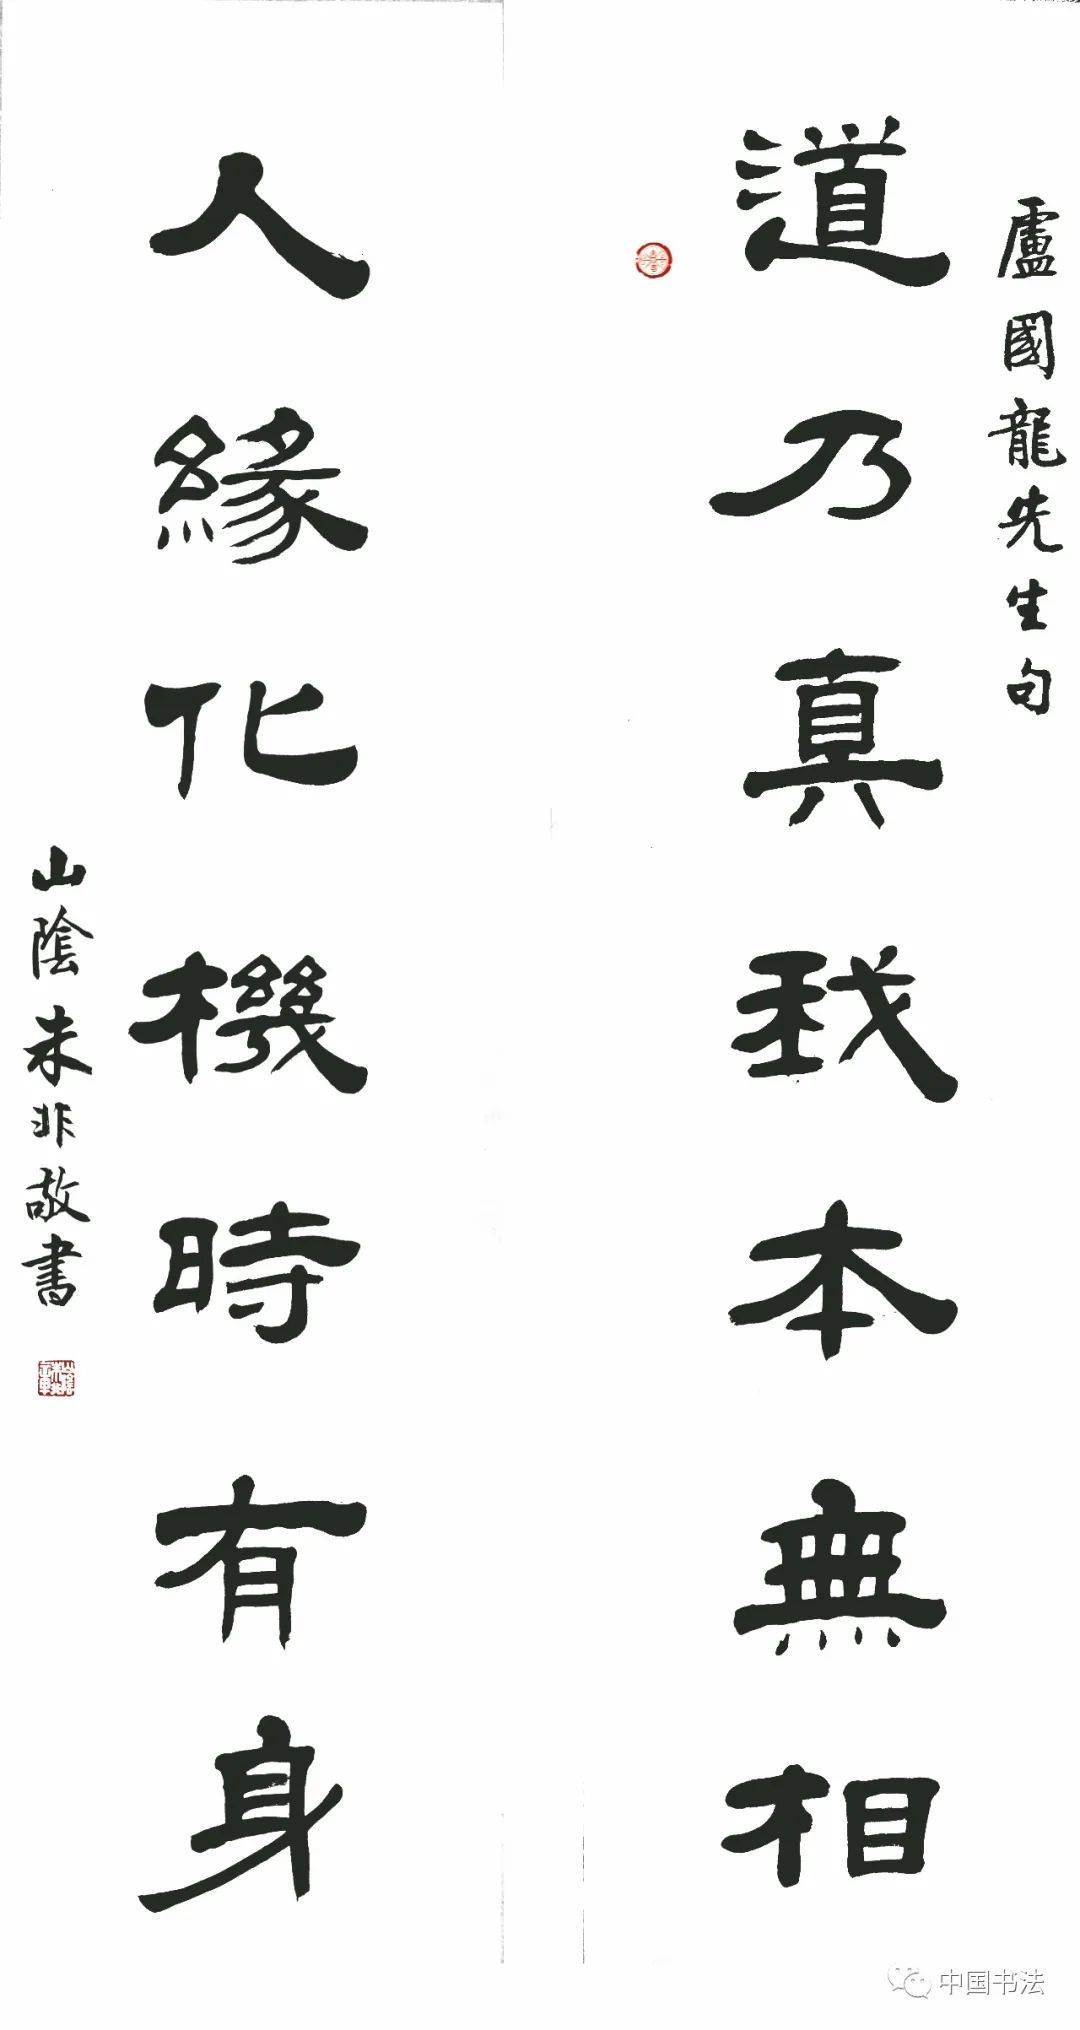 盧國龍先生句
道乃真我本無相
人緣化機時有身
山陰朱非敬書
中国书法